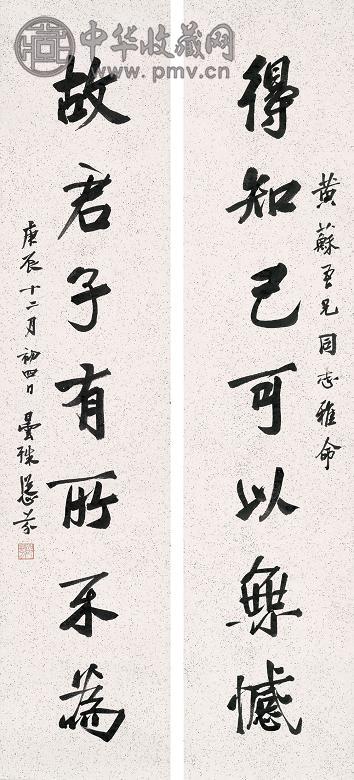 中华收藏网
www.pmv.cn
黄蘇吾兄同志雅命
得知己可以無憾
故君子有所不為
庚辰十二月初四日